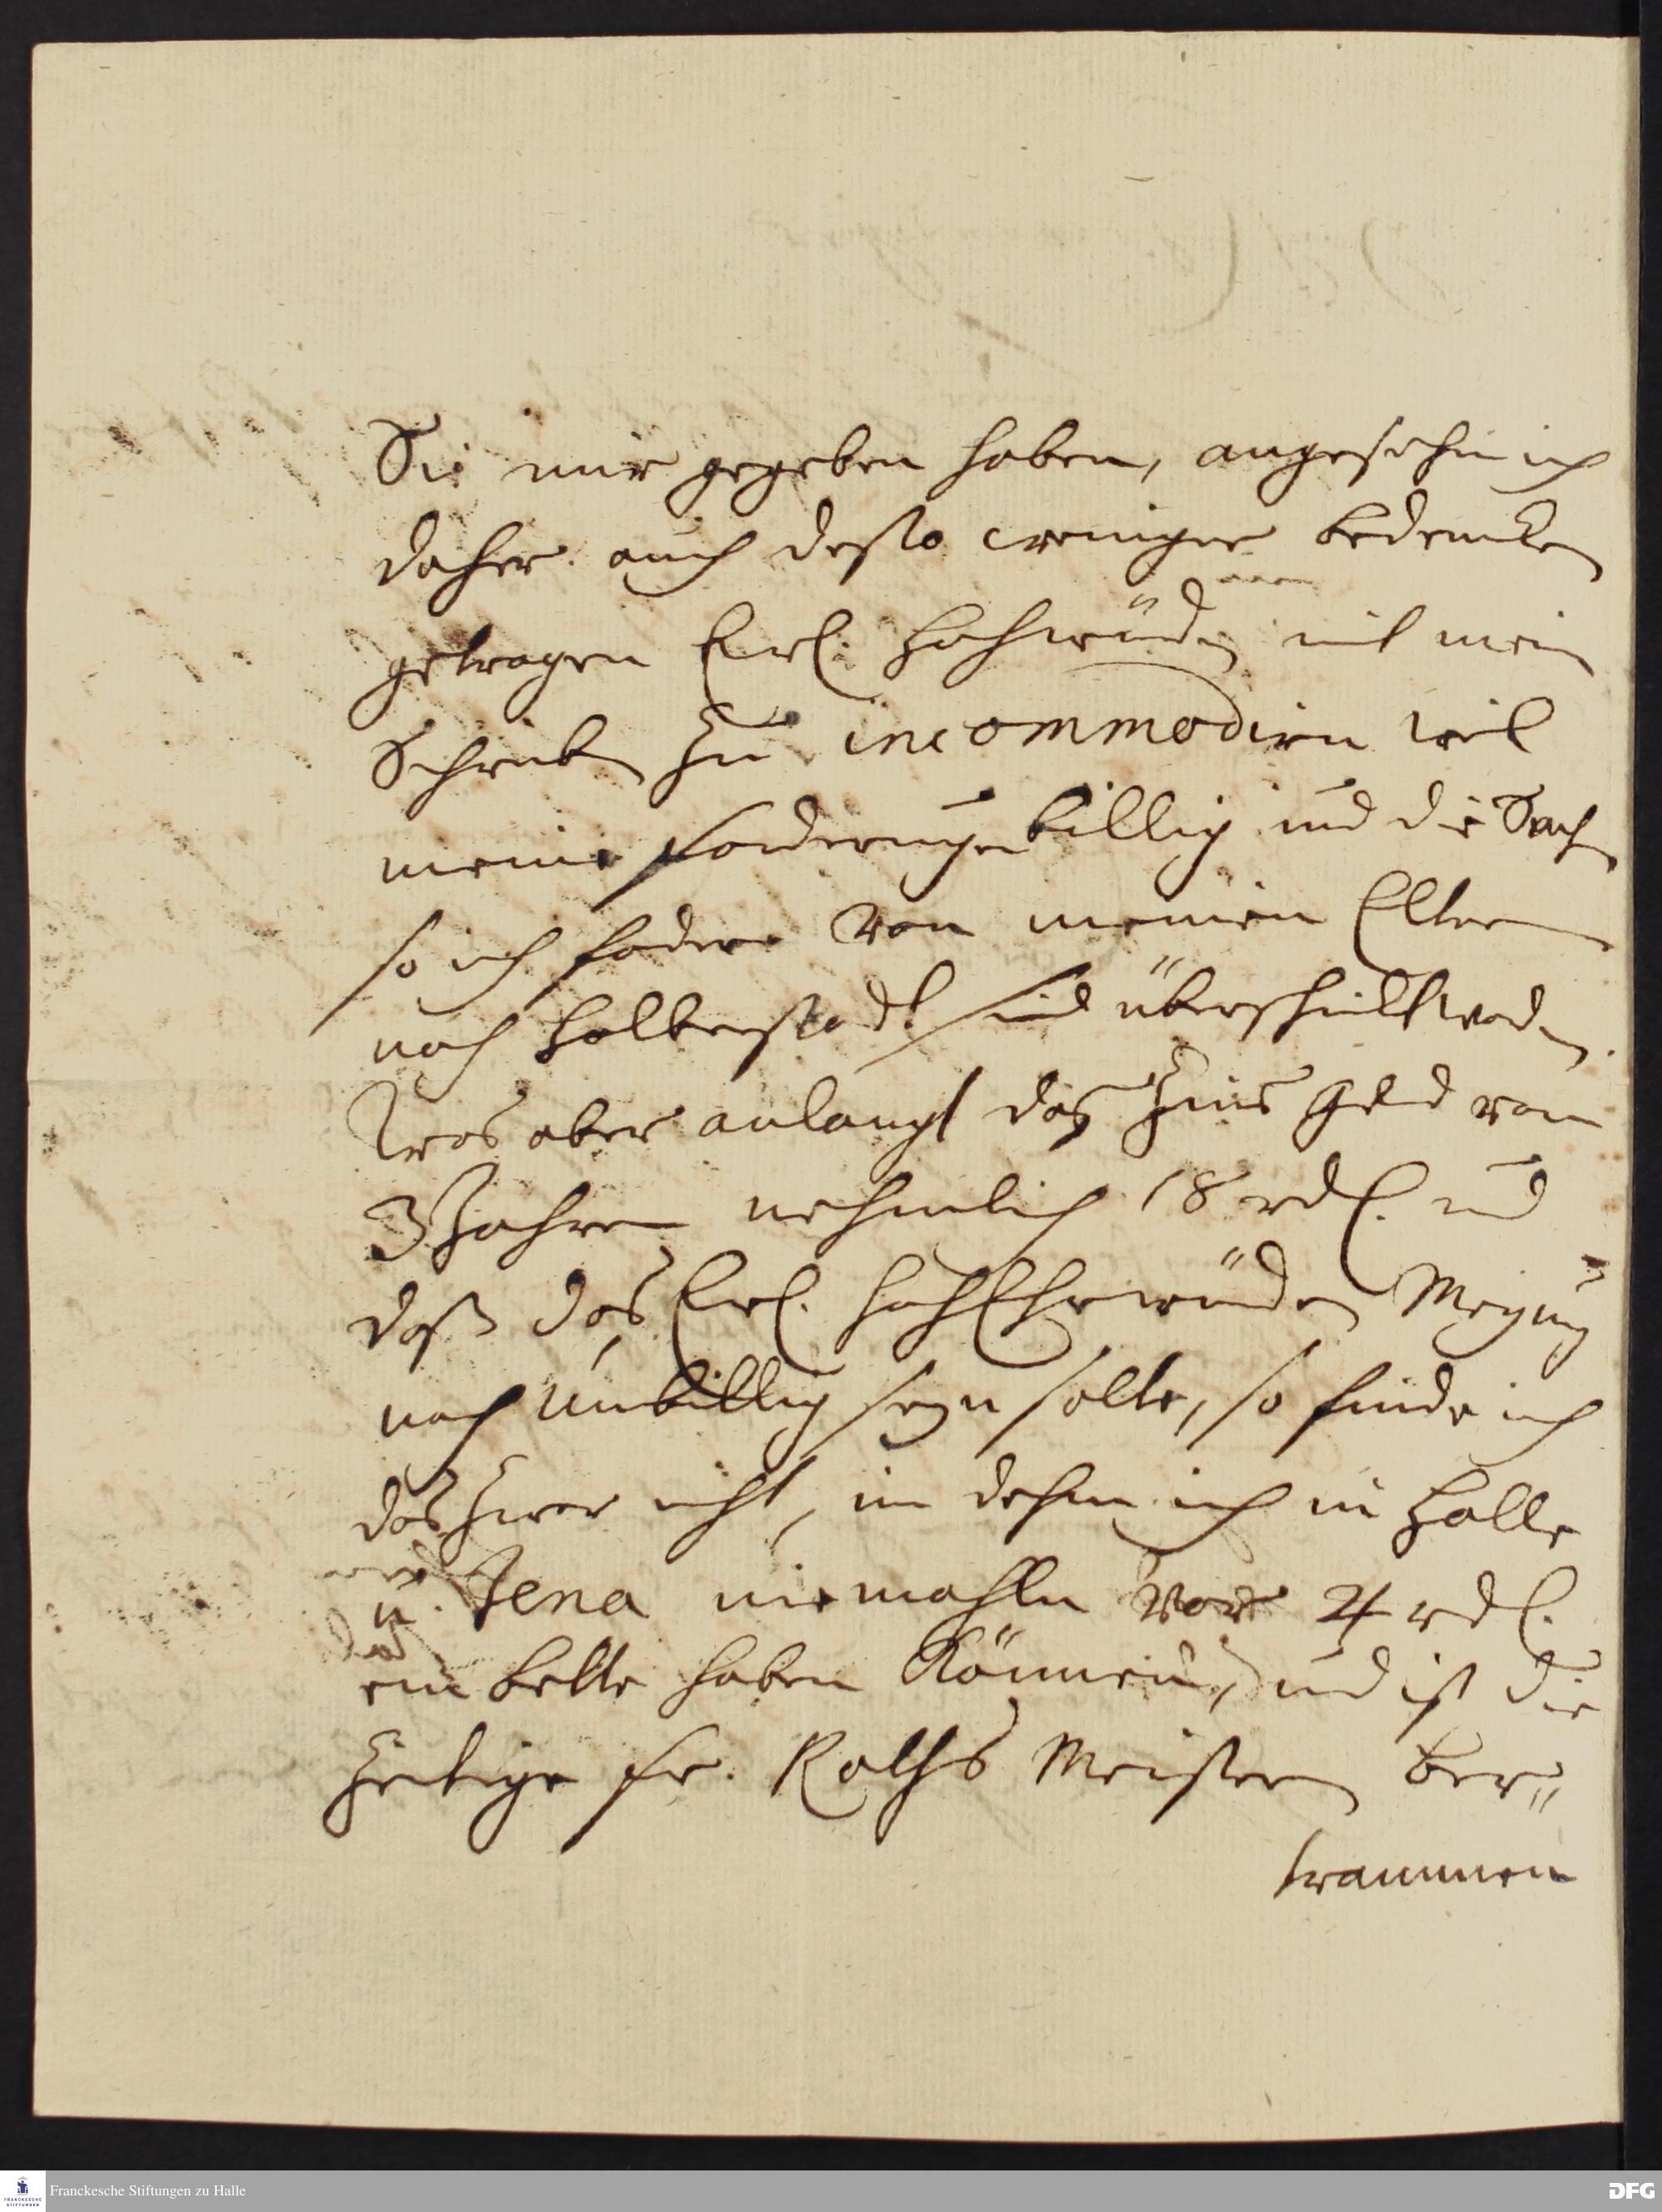 Sie mir gegeben haben, angesehen ich
daher auch desto weniger bedencken
getragen Ewl. Hochwürden mit mein
Schreiben zu incommodiren weil
meine foderungen billig und die Sach
so ich fodere von meinen Eltern
nach Halberstadt sind überschickt worden.
Was aber anlangt daß Zins Geld von
3 Jahren nehmlich 18 rdl. und
daß das Ewl. HochEhrwürden Meynung
nach unbillig seyn solte, so finde ich
das zwar nicht, in dehm ich in Halle
u. Jena niemahln vor 4 rdl.
ein bette haben können, und ist die
Zeitige fr. Raths Meistern Ber-
trammen
Franckesche Stiftungen zu Halle
DFG